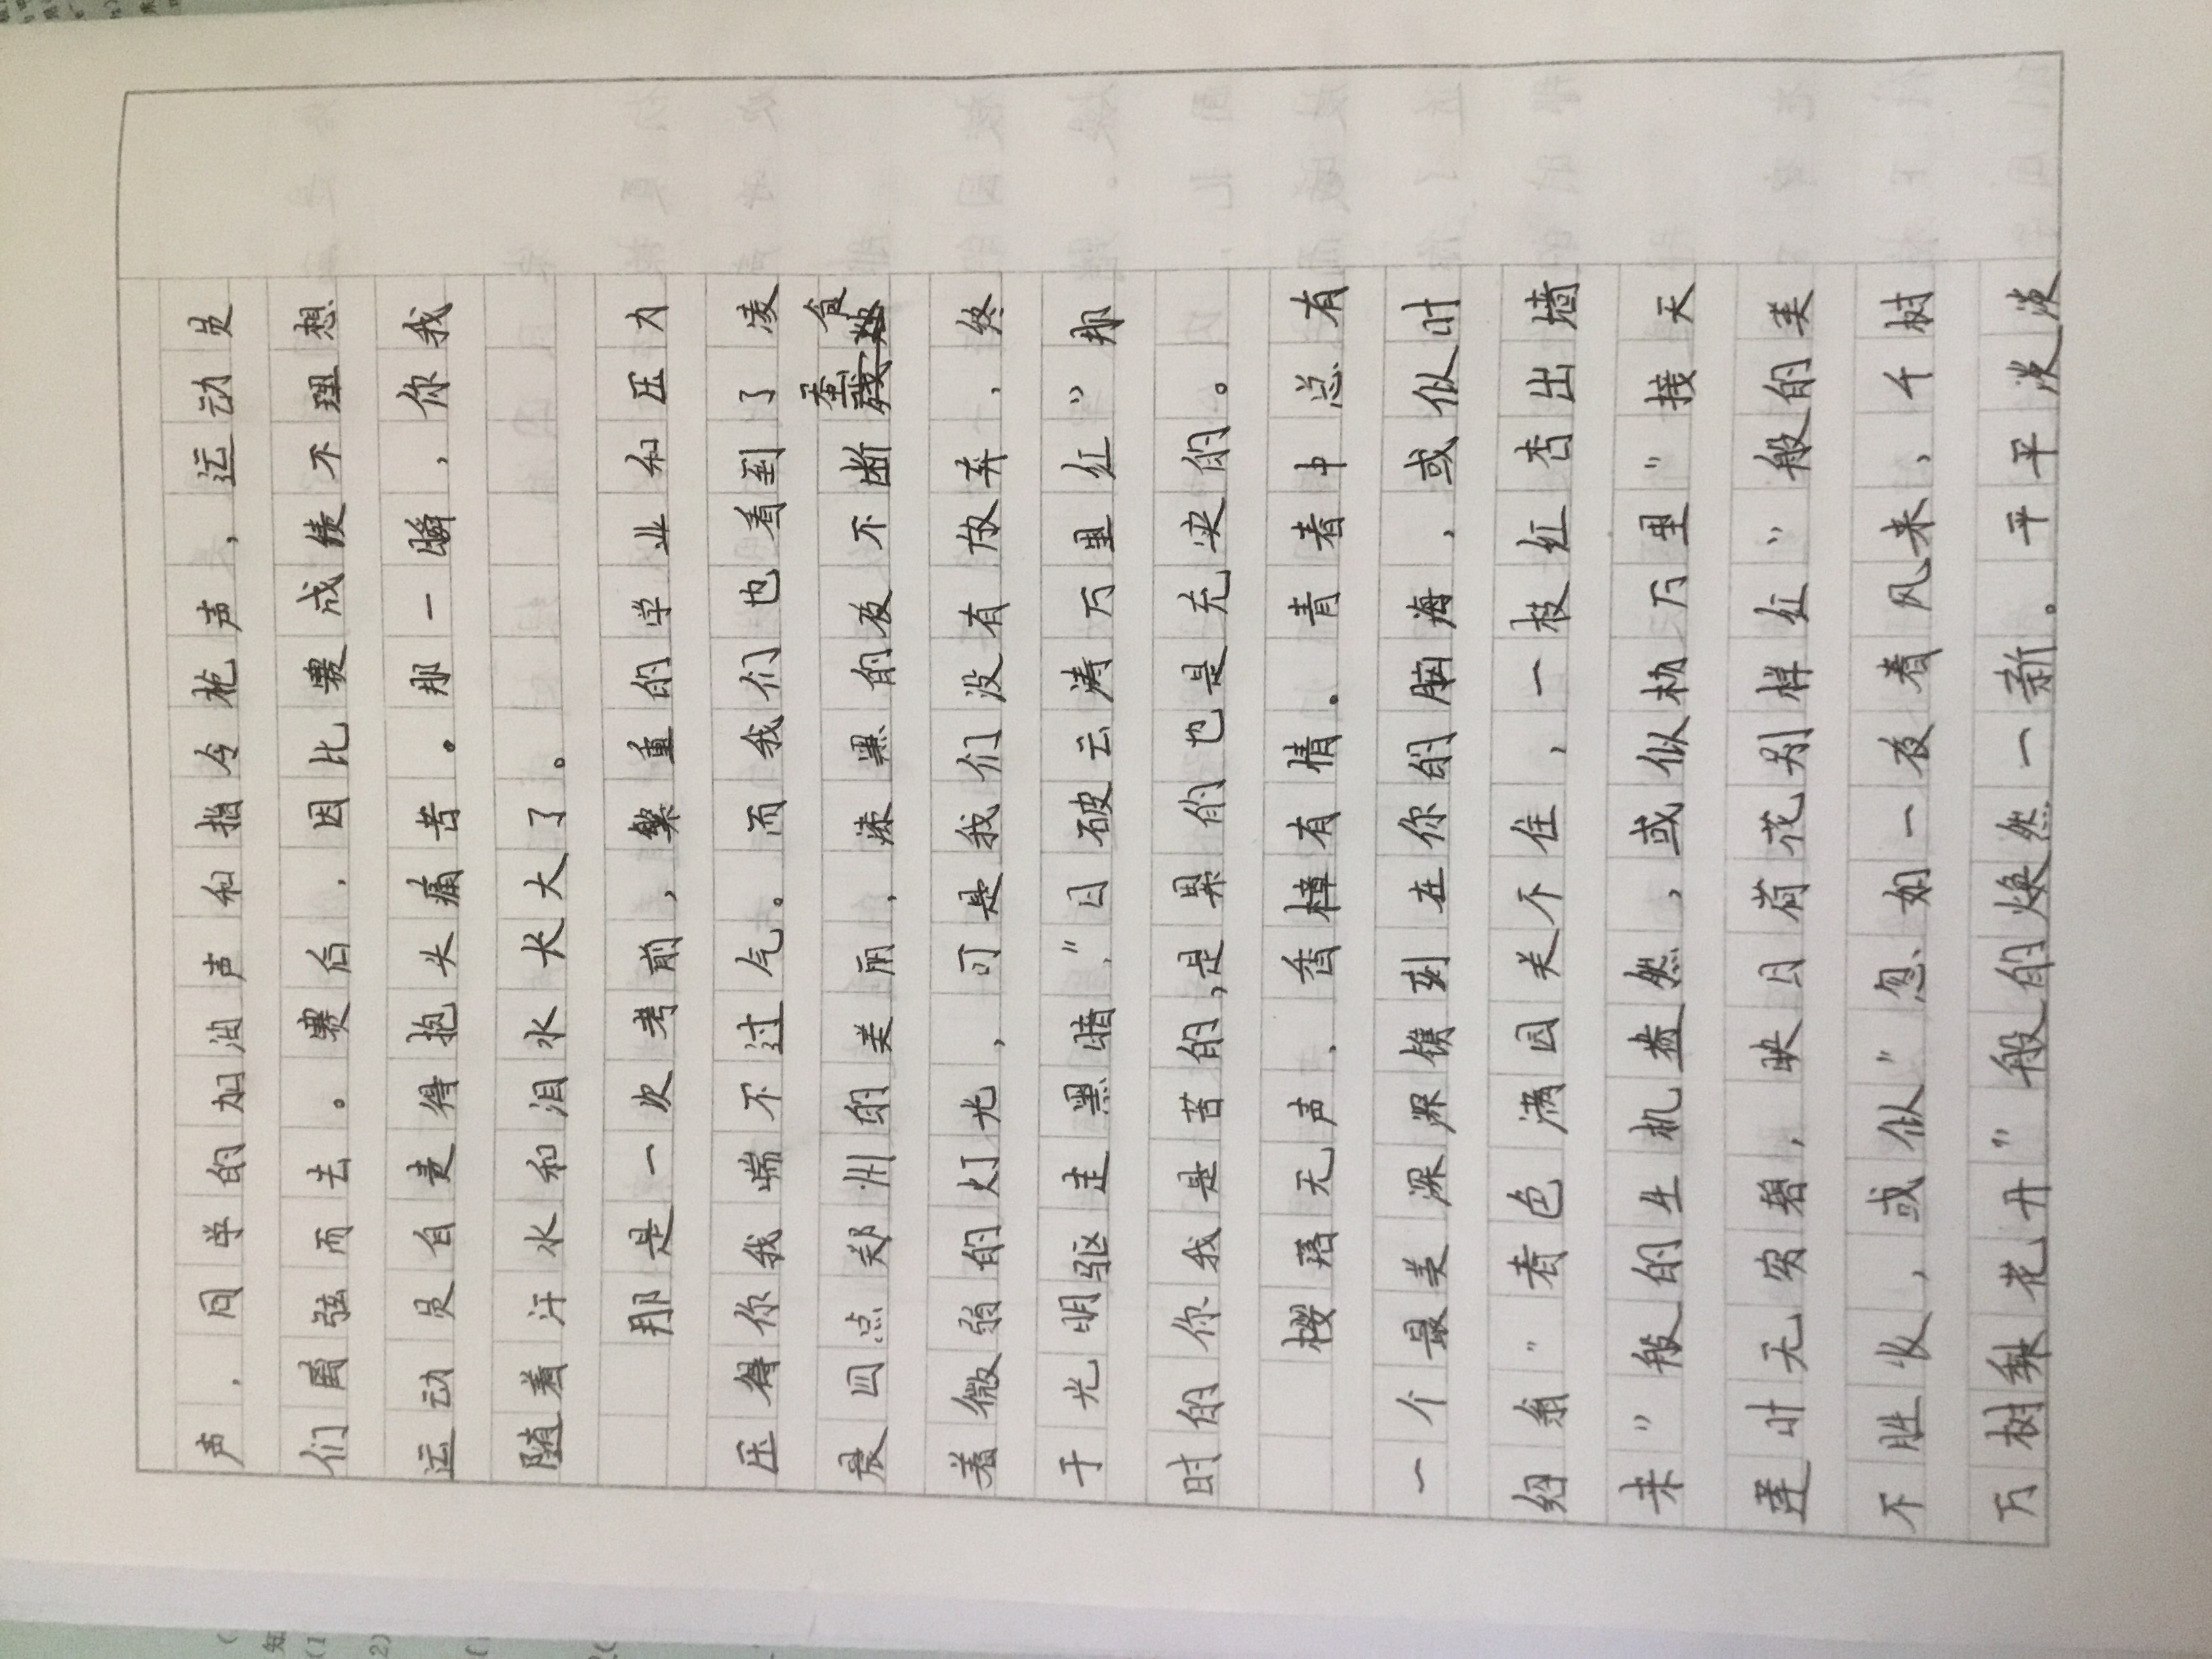 声，同学的加油声和指令枪声，运动员
们离弦而去。赛后，因比赛成绩不理想
运动员自责得抱头痛苦。那一瞬，你我
随着汗水和泪水长大了。
那是一次考前，繁重的学业和压力
压得你我喘不过气。而我们也看到了凌
晨四点郑州的美丽，漆黑的夜不断蚕食
着微弱的灯光，可是我们没有放弃，终
于光明驱走黑暗，"日破云涛万里红"那
时的你我是苦的，是累的也是充实的。
樱落无声，香樟有情。青春中总有
一个最美深深镌刻在你的脑海，或似叶
绍翁"春色满园关不住，一枝红杏出墙
来"般的生机盎然，或似杨万里"接天
莲叶无穷碧，映日荷花别样红"般的美
不胜收，或似"忽如一夜春风来，千树
万树梨花开"般的焕然一新。平平淡淡